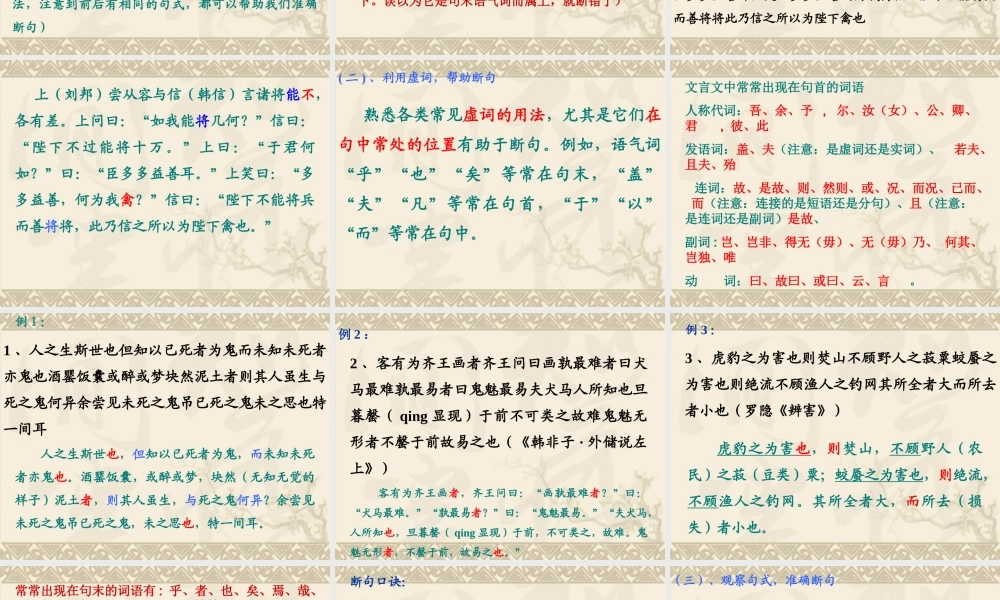 法，注意到前后有相同的句式，都可以帮助我们准确
断句）
下。误以为它是句末语气词而属上，就断错了）
而善将将此乃信之所以为陛下禽也
上（刘邦）尝从容与信（韩信）言诸将能不，
各有差。上问曰：“如我能将几何？”信曰：
“陛下不过能将十万。”上曰：“于君何
如？”曰：“臣多多益善耳。”上笑曰：“多
多益善，何为我禽？”信曰：“陛下不能将兵
而善将将，此乃信之所以为陛下禽也。”
(二)、利用虚词，帮助断句
熟悉各类常见虚词的用法，尤其是它们在
句中常处的位置有助于断句。例如，语气词
“乎”“也”“矣”等常在句末，“盖”
“夫”“凡”等常在句首，“于”“以”
“而”等常在句中。
文言文中常常出现在句首的词语
人称代词：吾、余、予 ，尔、汝（女）、公、卿、
君 ，彼、此
发语词：盖、夫（注意：是虚词还是实词）、 若夫、
且夫、殆
连词：故、是故、则、然则、或、况、而况、已而、
而（注意：连接的是短语还是分句）、且（注意：
是连词还是副词）是故、
副词：岂、岂非、得无（毋）、无（毋）乃、 何其、
岂独、唯
动 词：曰、故曰、或曰、云、言 。
例1：
1、人之生斯世也但知以已死者为鬼而未知未死者
亦鬼也酒罂饭囊或醉或梦块然泥土者则其人虽生与
死之鬼何异余尝见未死之鬼吊已死之鬼未之思也特
一间耳
人之生斯世也，但知以已死者为鬼，而未知未死
者亦鬼也。酒罂饭囊，或醉或梦，块然（无知无党的
样子）泥土者，则其人虽生，与死之鬼何异？余尝见
未死之鬼吊已死之鬼，未之思也，特一间耳。
例2：
2、客有为齐王画者齐王问曰画孰最难者曰犬
马最难孰最易者曰鬼魅最易夫犬马人所知也旦
暮罄（ qing 显现）于前不可类之故难鬼魅无
形者不罄于前故易之也（《韩非子·外储说左
上》）
客有为齐王画者，齐王问曰：“画孰最难者？”曰：
“犬马最难。”“孰最易者？”曰：“鬼魅最易。”“夫犬马，
人所知也，旦暮罄（ qing 显现）于前，不可类之，故难。鬼
魅无形者，不罄于前，故易之也。”
例3：
3、虎豹之为害也则焚山不顾野人之菽粟蛟蜃之
为害也则绝流不顾渔人之钓网其所全者大而所去
者小也（罗隐《辨害》）
虎豹之为害也，则焚山，不顾野人（农
民）之菽（豆类）粟；蛟蜃之为害也，则绝流，
不顾渔人之钓网。其所全者大，而所去（损
失）者小也。
常常出现在句末的词语有：乎、者、也、矣、焉、哉、
断句口诀：
(三)、观察句式，准确断句